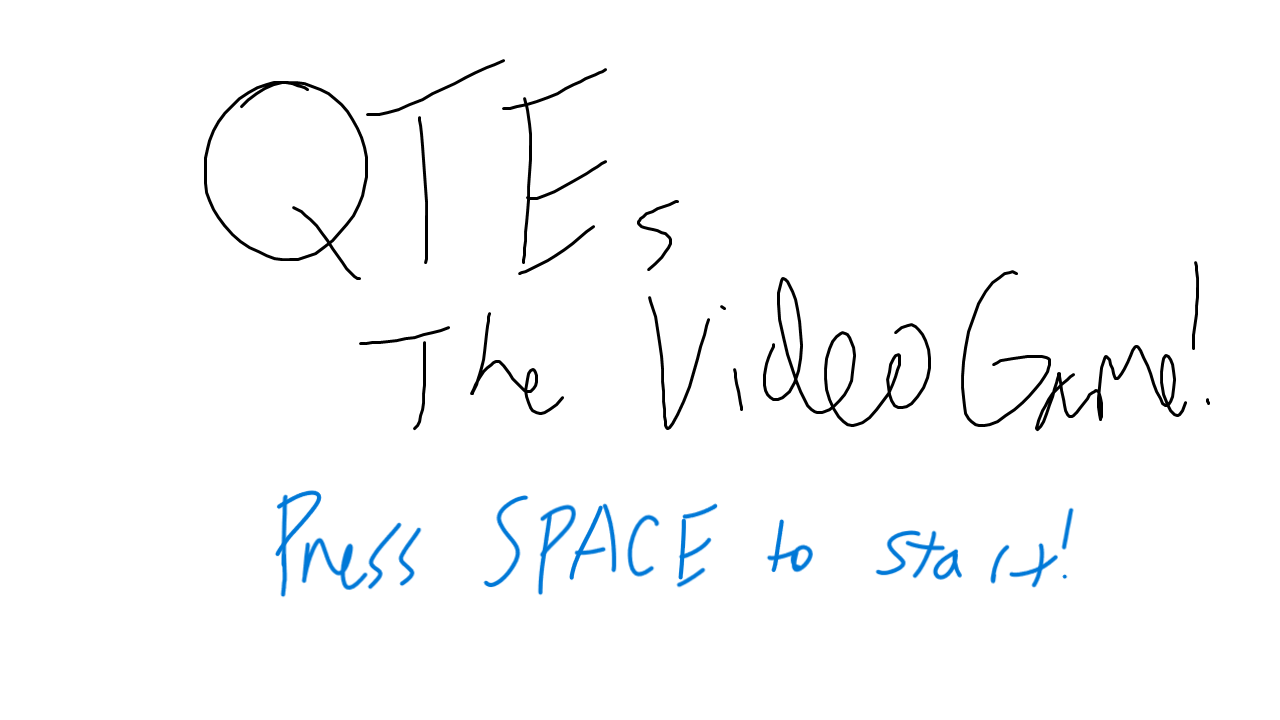 QTEs
The Video Game!
Press SPACE to start!